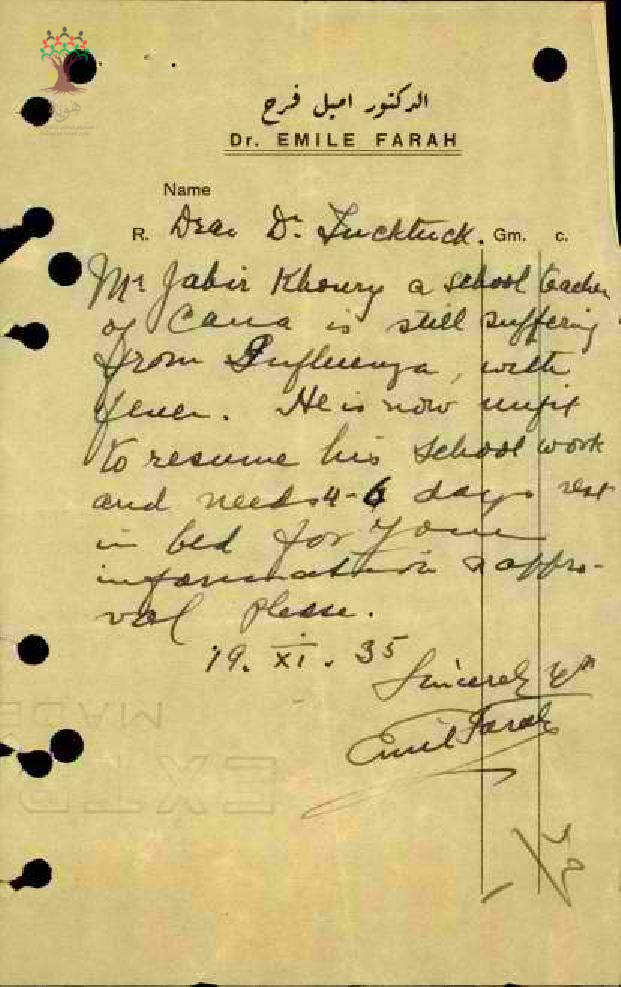 الدكتور اميل فرح
Dr. EMILE FARAH
Name
R. Dear Dr. Tucktuck. Gm. c.
Mr Jabir Khoury a school teacher
of Cana is still suffering
from Influenza, with
fever. He is now unfit
to resume his school work
and needs 4-6 days rest
in bed for your
information & appro-
val please.
19. XI. 35
Sincerely
Emil Farah
MADE
EXTR